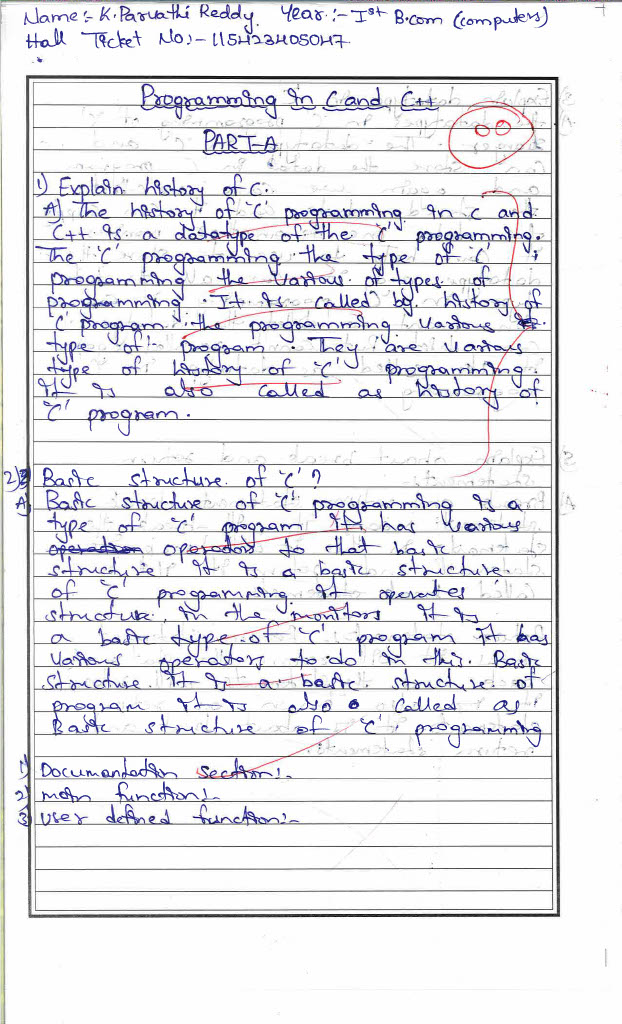 Name :- K. Parvathi Reddy. Year :- Ist B.com (computers)
Hall Ticket No :- 115423405047
Programming in C and C++
00
PART-A
1) Explain history of C.
A) The history of 'C' programming in C and
C++ is a datatype of the 'C' programming.
The 'C' programming the type of 'C'
programming the various of types of
programming. It is called by history of
'C' program. the programming various
type of program. They are various
type of history of 'C' programming.
It is also called as history of
'C' program.
2) Basic structure of 'C' ?
A) Basic structure of 'C' programming is a
type of 'C' program it has various
operators to that basic
structure it is a basic structure
of 'C' programming. It operates
structure, in the monitors It is
a basic type of 'C' program it has
various operators to do in this. Basic
structure. It is a basic structure of
program It is also called as
Basic structure of 'C' programming
1) Documentation section:-
2) main function:-
3) User defined function:-